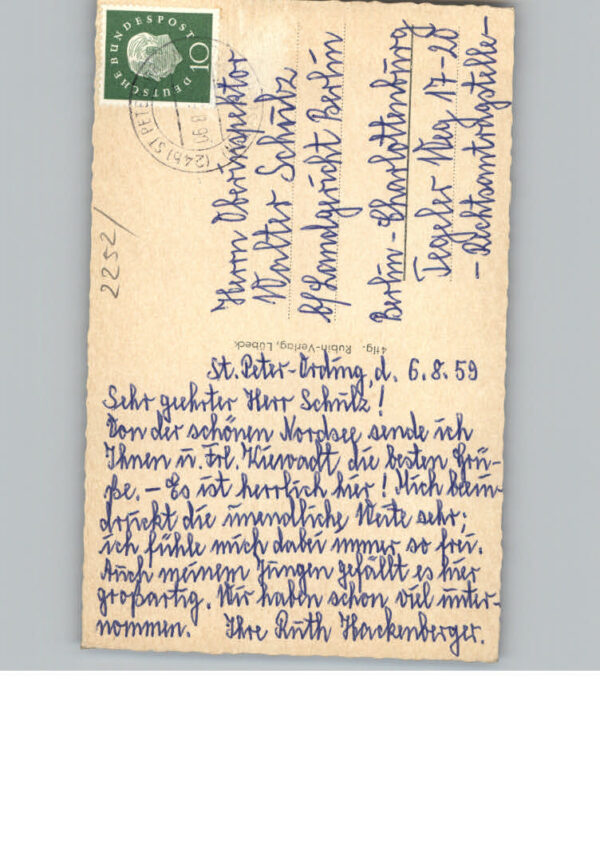 DEUTSCHE BUNDESPOST
10
(24b) ST PETER
2252/
Herrn Oberinspektor
Walter Schulz
b/Landgericht Berlin
Berlin-Charlottenburg
Tegeler Weg 17-20
-Rechtsantragstelle-
4flg. Rubin-Verlag, Lübeck
St. Peter-Ording, d. 6.8.59
Sehr geehrter Herr Schulz!
Von der schönen Nordsee sende ich
Ihnen u. Frl. Kuwadt die besten Grü-
ße. - Es ist herrlich hier! Mich beein-
druckt die unendliche Weite sehr;
ich fühle mich dabei immer so frei.
Auch meinem Jungen gefällt es hier
großartig. Wir haben schon viel unter-
nommen. Ihre Ruth Hackenberger.